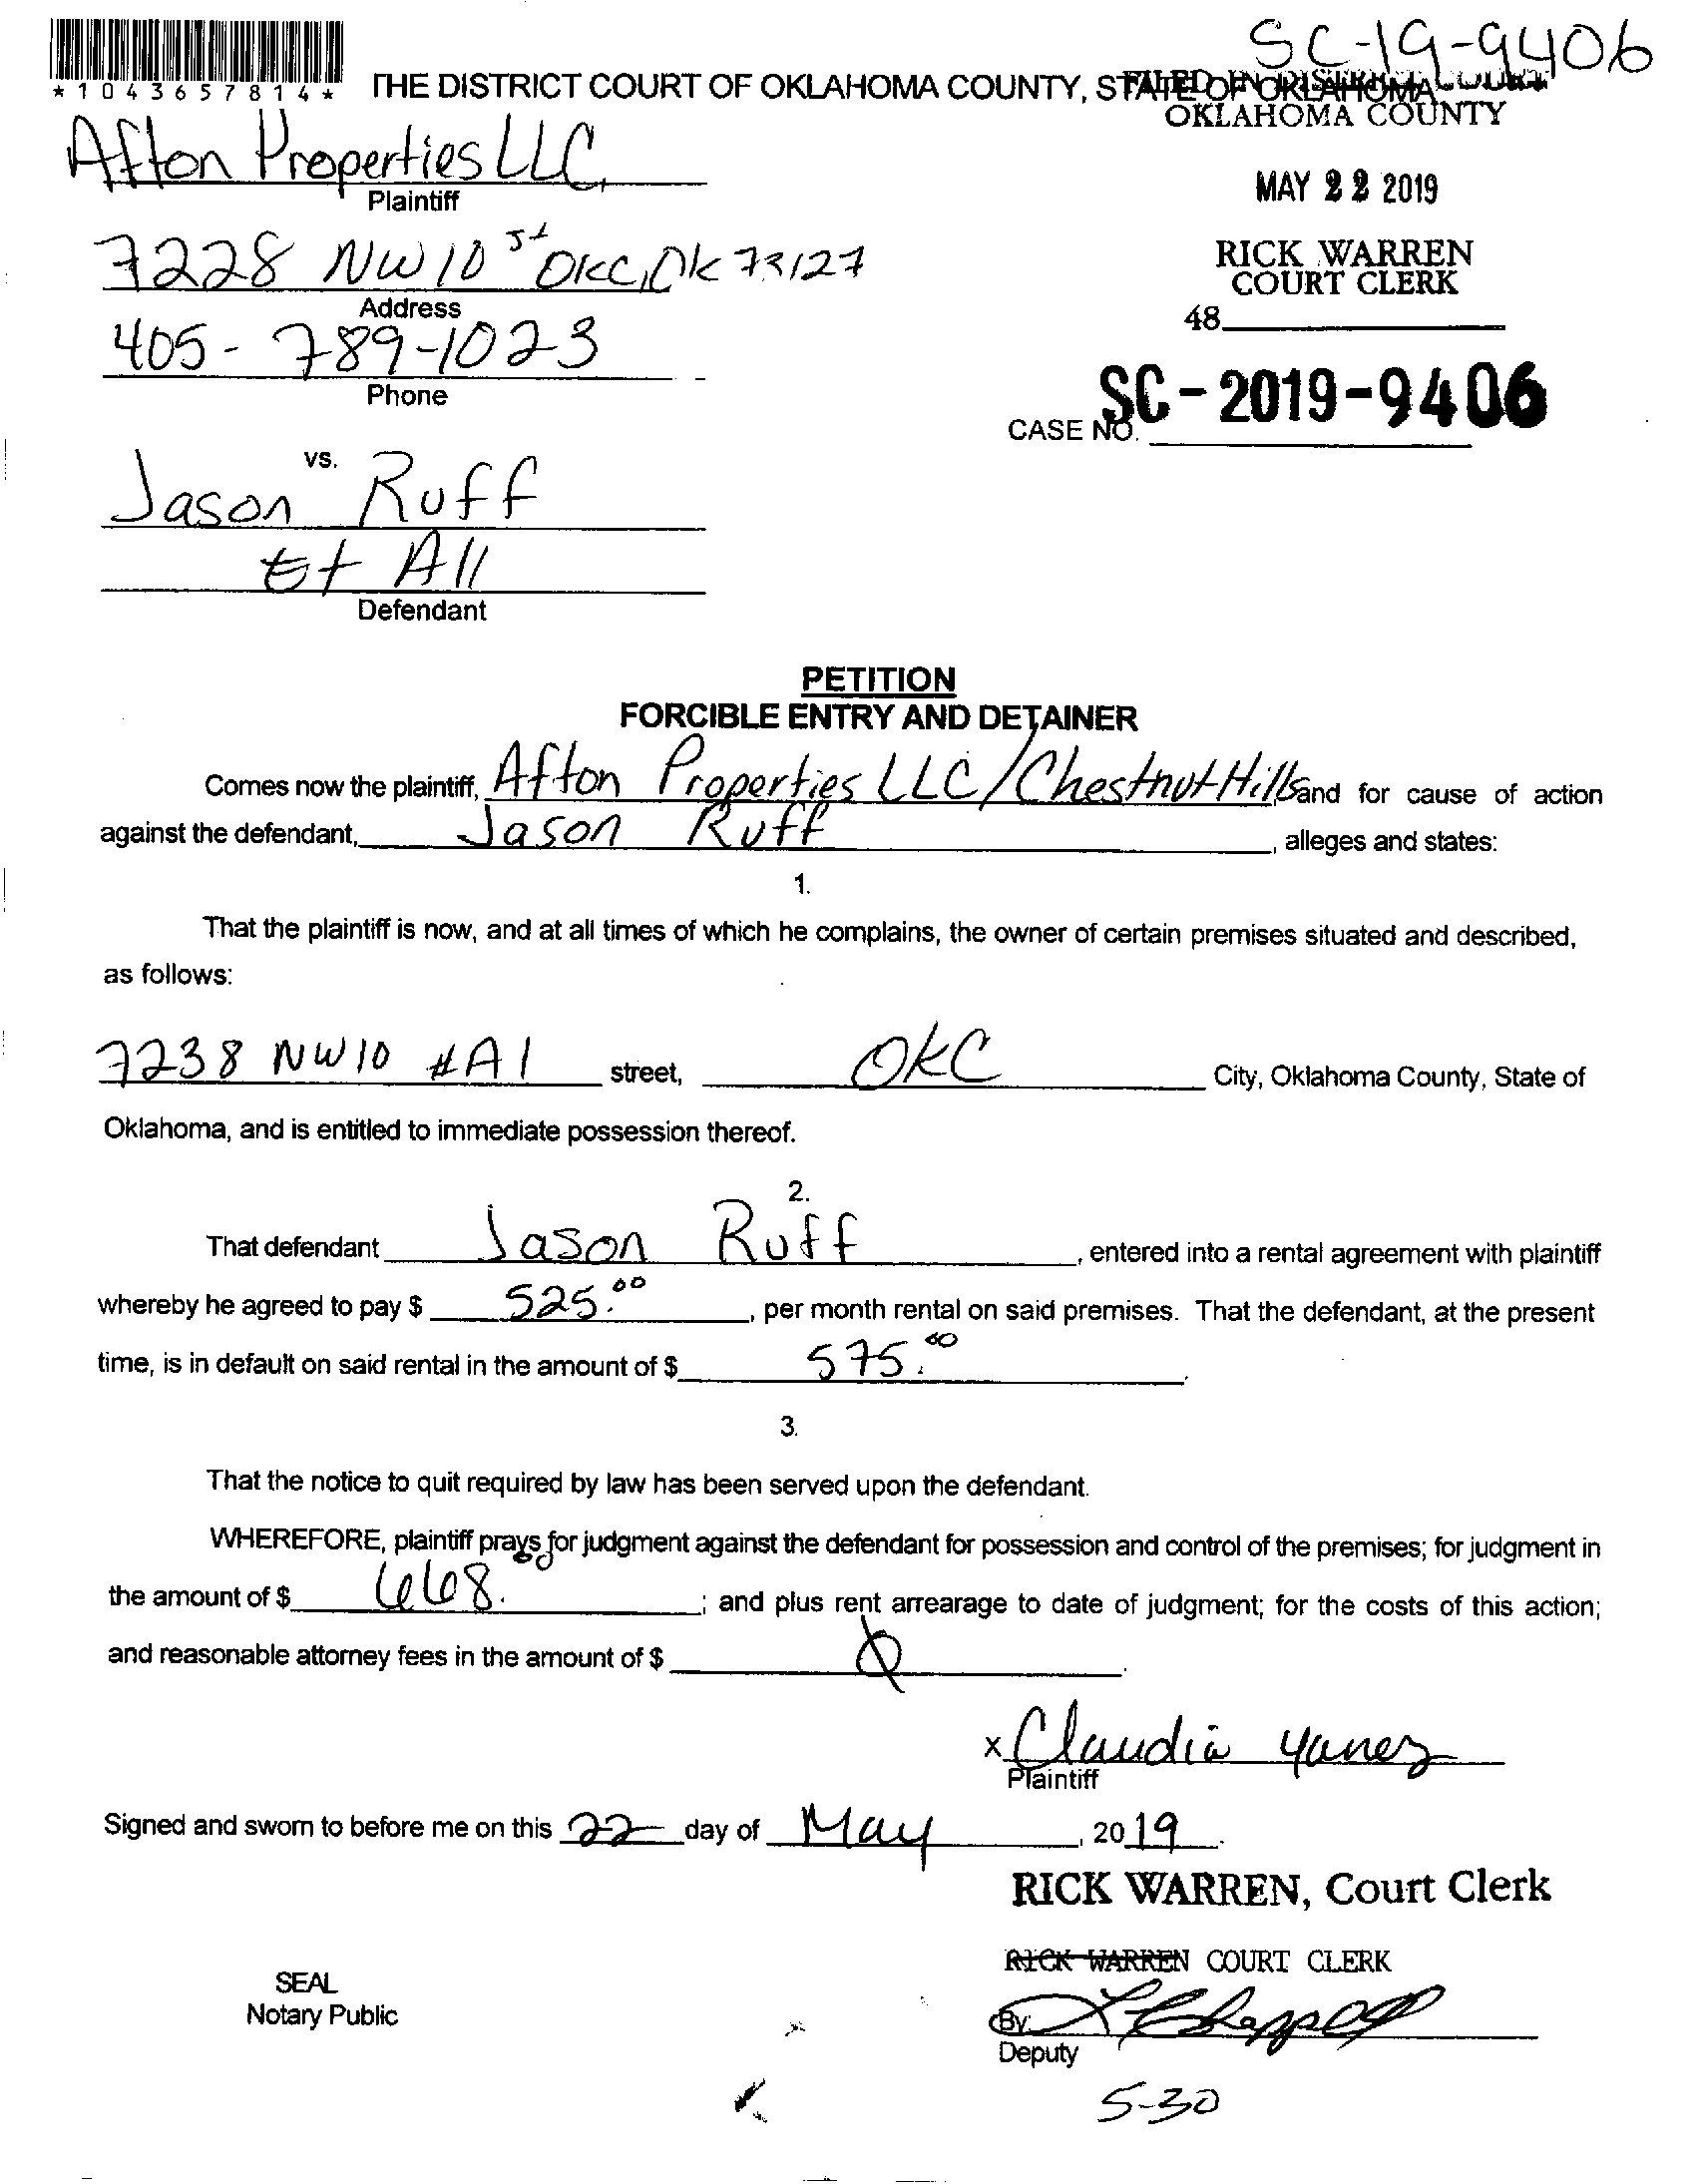 SC-19-9406
*1043657814*
THE DISTRICT COURT OF OKLAHOMA COUNTY, STATE OF OKLAHOMA
FILED IN DISTRICT COURT
OKLAHOMA COUNTY
Afton Properties LLC,
Plaintiff
MAY 22 2019
7228 NW 10 St OKC, OK 73127
Address
RICK WARREN
COURT CLERK
48
405-789-1023
Phone
CASE NO. SC-2019-9406
vs.
Jason Ruff
Et All
Defendant
PETITION
FORCIBLE ENTRY AND DETAINER
Comes now the plaintiff, Afton Properties LLC/Chestnut Hills and for cause of action
against the defendant, Jason Ruff, alleges and states:
1.
That the plaintiff is now, and at all times of which he complains, the owner of certain premises situated and described,
as follows:
7238 NW 10 #A1 street, OKC City, Oklahoma County, State of
Oklahoma, and is entitled to immediate possession thereof.
2.
That defendant Jason Ruff, entered into a rental agreement with plaintiff
whereby he agreed to pay $ 525.00, per month rental on said premises. That the defendant, at the present
time, is in default on said rental in the amount of $ 575.00.
3.
That the notice to quit required by law has been served upon the defendant.
WHEREFORE, plaintiff prays for judgment against the defendant for possession and control of the premises; for judgment in
the amount of $ 668.00; and plus rent arrearage to date of judgment; for the costs of this action;
and reasonable attorney fees in the amount of $ 0.
x Claudia Yanez
Plaintiff
Signed and sworn to before me on this 22 day of May, 2019.
RICK WARREN, Court Clerk
RICK WARREN COURT CLERK
SEAL
Notary Public
By:
Deputy
5-30